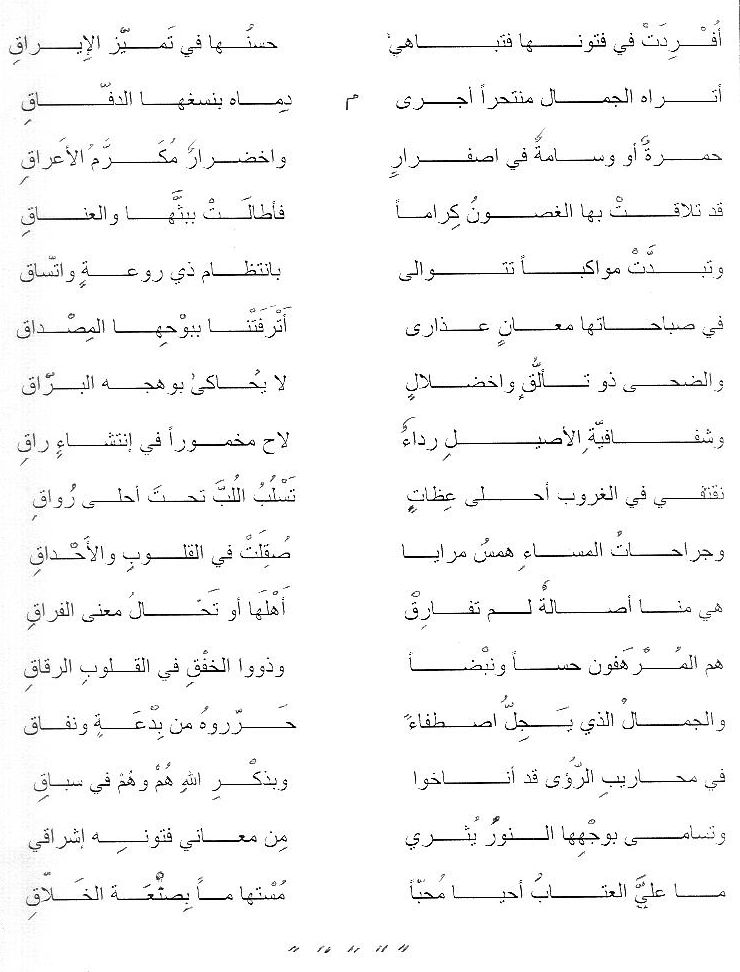 أُفْرِدَتْ في فتونها فتباهى حسنُها في تَميّز الإيراقِ
أتراه الجمال منتحراً أجرى م دِماه بنسغها الدفّاقِ
حمرةً أو وسامةً في اصفرارٍ واخضرارٌ مُكَرَّمُ الأعراقِ
قد تلاقتْ بها الغصونُ كِراماً فأطالَتْ ببثَّها والعناقِ
وتبدَّتْ مواكباً تتوالى بانتظام ذي روعةٍ واتّساق
في صباحاتها معانٍ عذارى أَتْرَفَتْنا ببوْحِها المِصْداق
والضحى ذو تألّقٍ واخضلالٍ لا يُحاكىٰ بوهجه البرّاق
وشفافيّةِ الأصيلِ رداءً لاح مخموراً في إنتشاءٍ راقِ
نقتفي في الغروب أحلى عِظاتٍ تَسْلُبُ اللُبَّ تحتَ أحلى رُواقِ
وجراحاتُ المساءِ همسُ مرايا صُقِلَتْ في القلوبِ والأَحْداقِ
هي منا أصالةً لم تفارِقْ أَهْلَها أو تَخَالُ معنى الفراقِ
هم المُرْهَفون حساً ونبْضاً وذووا الخفْقِ في القلوبِ الرقاقِ
والجمالُ الذي يَجِلُّ اصطفاءً حَرّروهُ من بِدْعَةٍ ونفاق
في محاريبِ الرّؤى قد أناخوا وبذكْرِ اللهِ هُمْ وهُمْ في سباقِ
وتسامى بوجْهِها النورُ يُثري مِن معاني فتونِه إشراقي
ما عليَّ العتابُ أحيا مُحبّاً مُسْتها ماً بِصنْعَة الخَلاّقِ